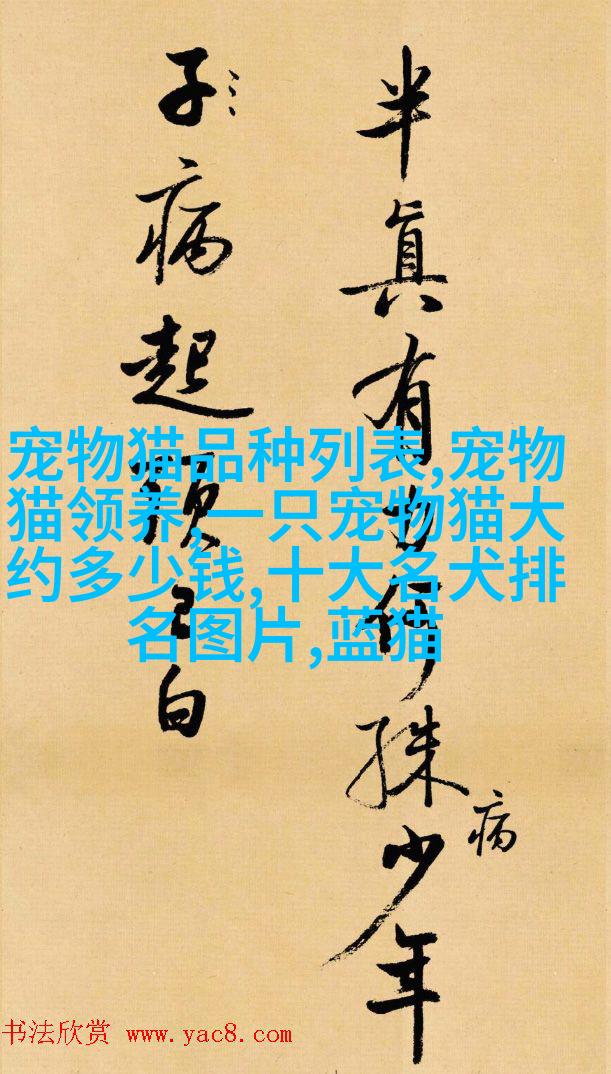 半真有何殊少年
病
子病起須已白
宠物猫品种列表,宠物
猫领养,一只宠物猫大
约多少钱,十大名犬排
名图片,蓝猫
书法欣赏 www.yac8.com